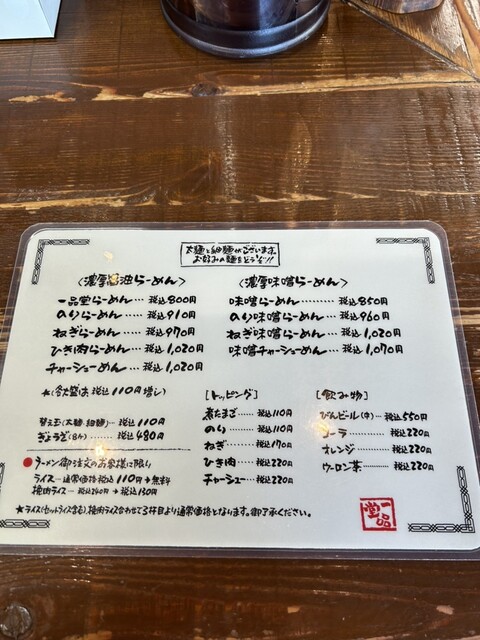 太麺と細麺がございます。
お好みの麺をどうぞ!!
〈濃厚醤油らーめん〉
一品堂らーめん… 税込800円
のりらーめん… 税込910円
ねぎらーめん… 税込970円
ひき肉らーめん… 税込1,020円
チャーシューめん… 税込1,020円
★(各大盛は 税込110円増し)
替え玉(太麺・細麺)… 税込110円
ぎょうざ(8ケ)… 税込480円
●ラーメン御注文のお客様に限り
ライス… 通常価格税込110円→無料
挽肉ライス… 税込240円→税込130円
〈濃厚味噌らーめん〉
味噌らーめん……… 税込850円
のり味噌らーめん… 税込960円
ねぎ味噌らーめん… 税込1,020円
味噌チャーシューめん… 税込1,070円
[トッピング]
煮たまご… 税込110円
のり…… 税込110円
ねぎ…… 税込170円
ひき肉… 税込220円
チャーシュー… 税込220円
[飲み物]
びんビール(中)… 税込550円
コーラ…… 税込220円
オレンジ… 税込220円
ウーロン茶… 税込220円
★ライス(セットライス含む)、挽肉ライス合わせて3杯目より通常価格となります。御了承ください。
一品堂